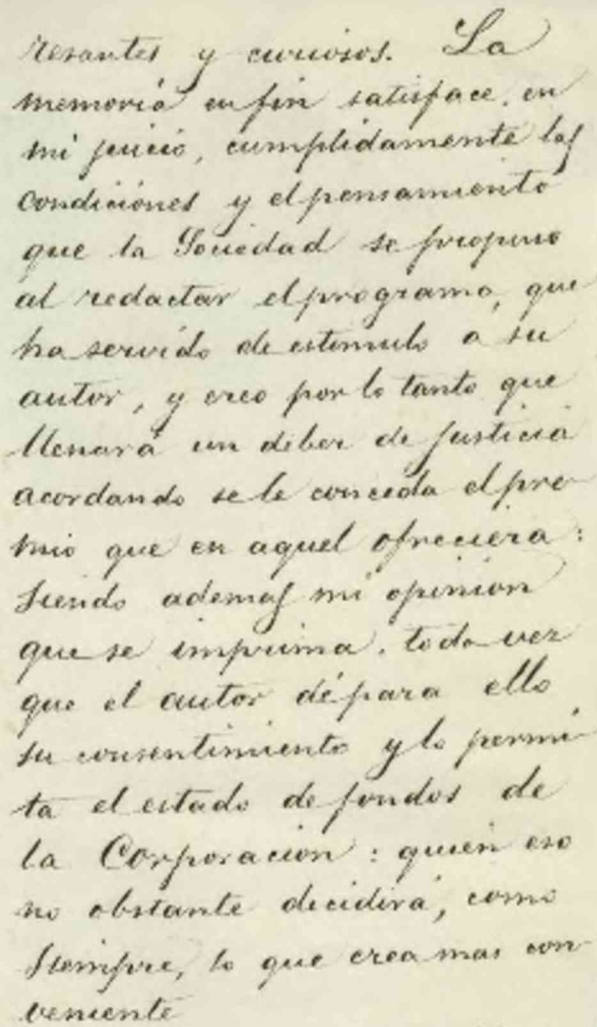 resantes y curiosos. La
memoria en fin satisface, en
mi juicio, cumplidamente las
condiciones y el pensamiento
que la Sociedad se propuso
al redactar el programa, que
ha servido de estimulo a su
autor, y creo por lo tanto que
llenará un deber de justicia
acordando se le conceda el pre-
mio que en aquel ofreciera:
siendo ademas mi opinion
que se imprima, toda vez
que el autor dé para ello
su consentimiento y lo permi-
ta el estado de fondos de
la Corporacion: quien eso
no obstante decidirá, como
siempre, lo que crea mas con-
veniente